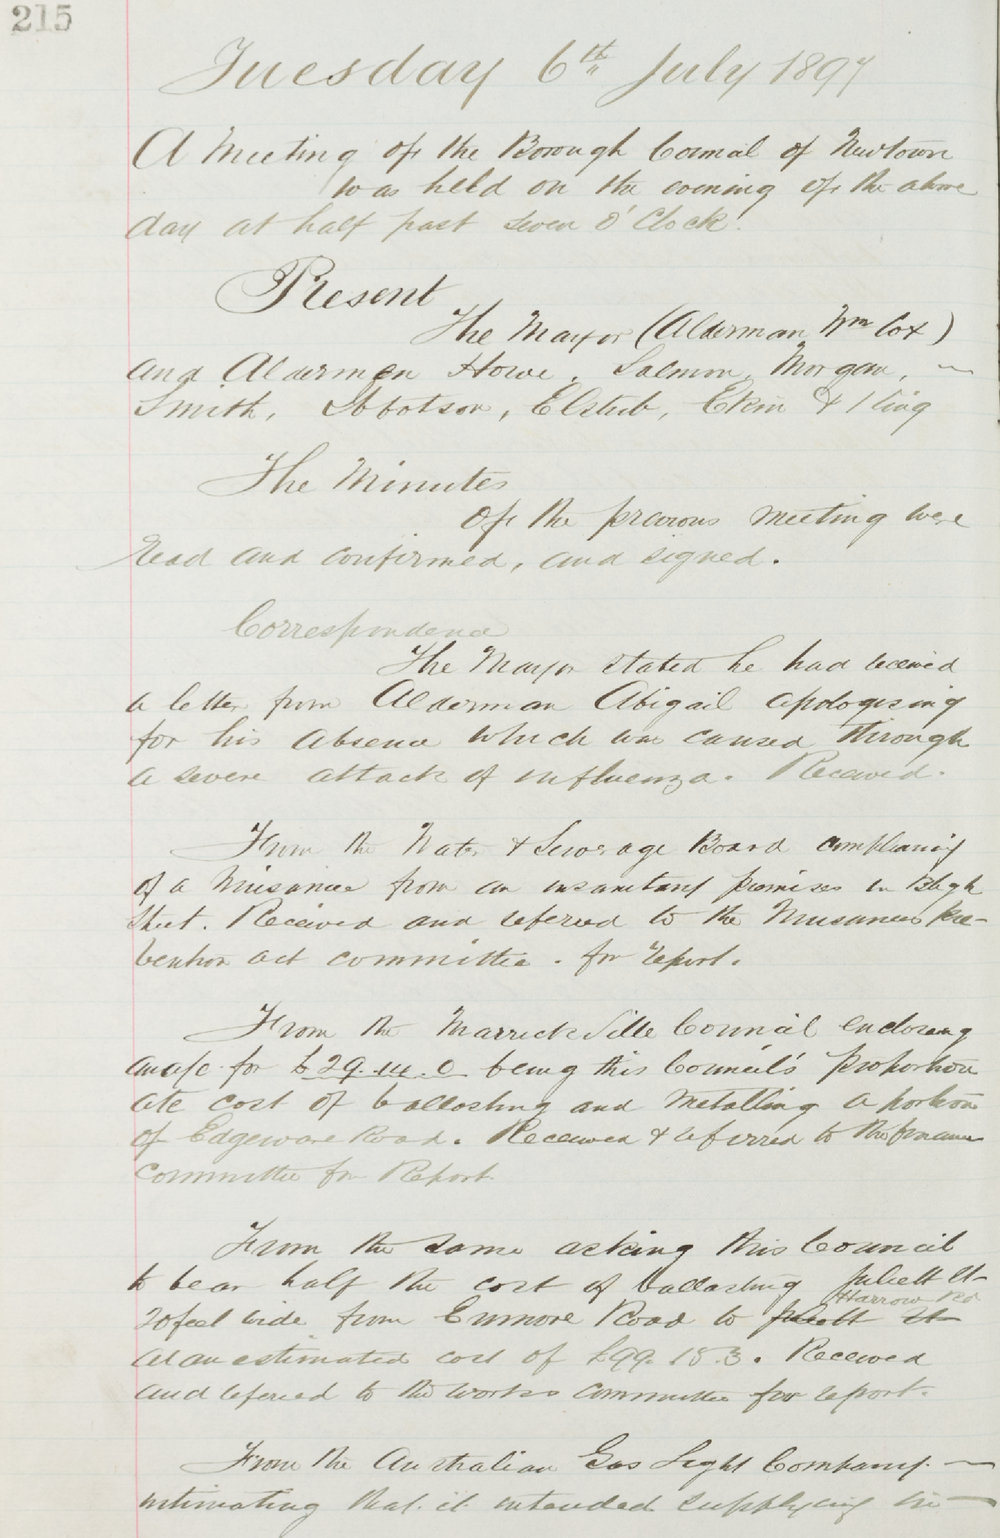 215
Tuesday 6th July 1897
A Meeting of the Borough Council of Newtown
was held on the evening of the above
day at half past seven O'Clock.
Present
The Mayor (Alderman Wm Cox)
and Aldermen Howe, Salmon, Morgan,
Smith, Ibbotson, Elstub, Ekin & Kling
The Minutes
Of the previous meeting were
read and confirmed, and signed.
Correspondence
The Mayor stated he had received
a letter from Alderman Abigail apologising
for his absence which was caused through
a severe attack of influenza. Received.
From the Water & Sewerage Board complaining
of a Nuisance from an insanitary premises in Bligh
Street. Received and refered to the Nuisances Pre-
vention act committee. for report.
From the Marrickville Council enclosing
an a/c for £29.14.0 being this Council's proportion
ate cost of ballasting and Metalling a portion
of Edgeware Road. Received & referred to the finance
Committee for Report.
From the same asking this Council
to bear half the cost of ballasting Juliett St
Harrow Rd
20 feet wide from Enmore Road to Juliett St
at an estimated cost of £99.18.3. Received
and refered to the works committee for report.
From the Australian Gas Light Company
intimating that it intended supplying in